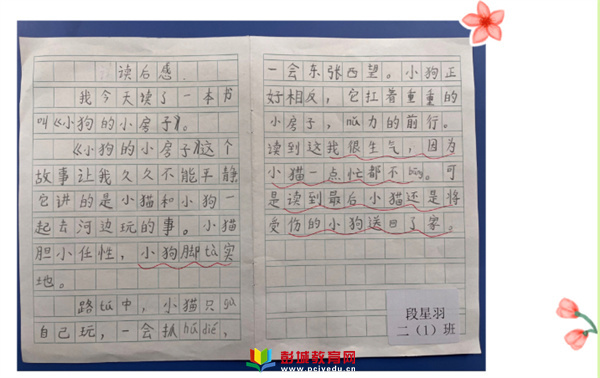 读后感
我今天读了一本书
叫《小狗的小房子》。
《小狗的小房子》这个
故事让我久久不能平静
它讲的是小猫和小狗一
起去河边玩的事。小猫
胆小任性，小狗脚tà实
地。
路tú中，小猫只gù
自己玩，一会抓hú dié，
一会东张西望。小狗正
好相反，它扛着重重的
小房子，nǔ力的前行。
读到这我很生气，因为
小猫一点忙都不bāng。可
是读到最后小猫还是将
受伤的小狗送回了家。
段星羽
二（1）班
彭城教育网
www.pcjyedu.cn